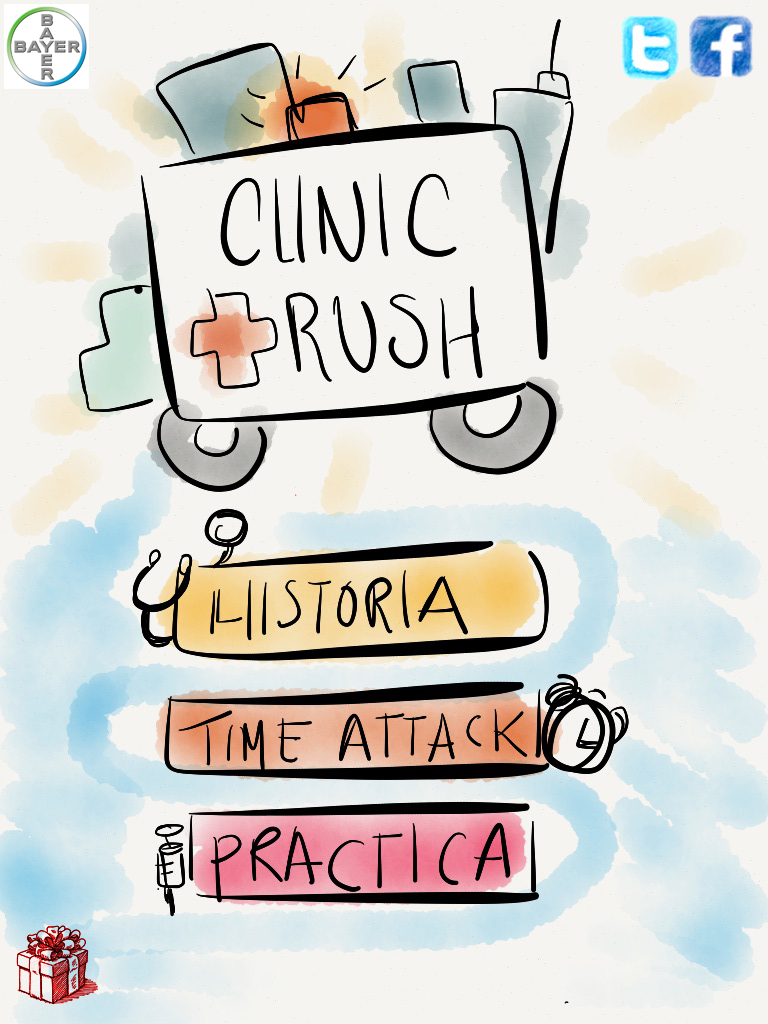 BAYER
BAYER
t
f
CLINIC
RUSH
HISTORIA
TIME ATTACK
PRACTICA